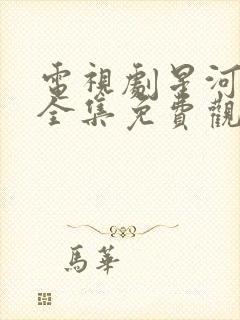 電視劇星河
全集免費觀
馬華